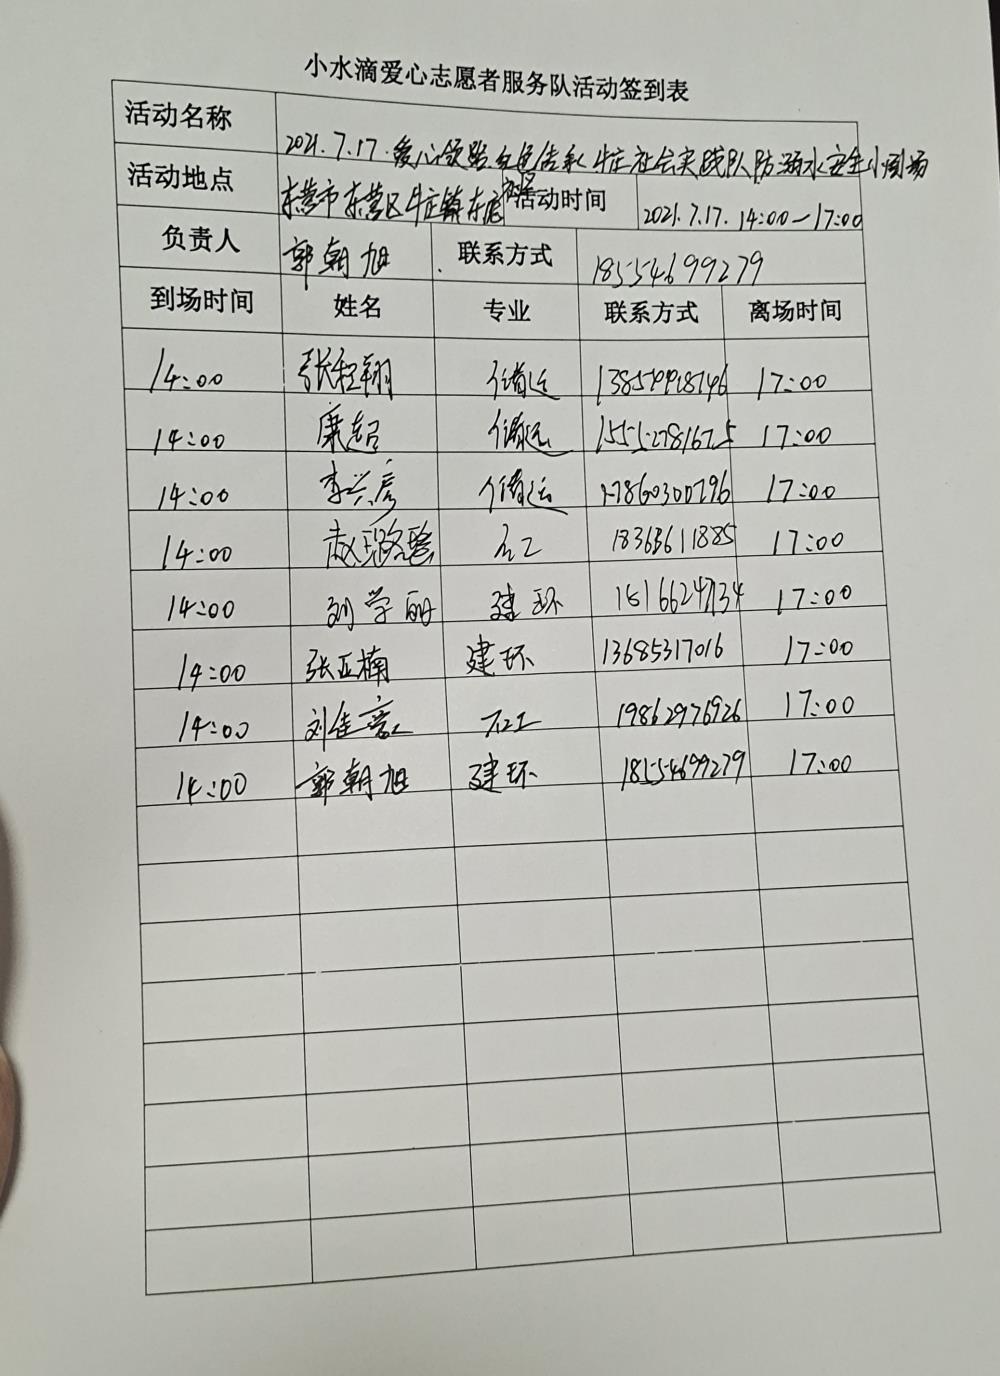 小水滴爱心志愿者服务队活动签到表
活动名称 2021.7.17.爱心领路红色传承牛庄社会实践队防溺水安全小剧场
活动地点 东营市东营区牛庄镇东 活动时间 2021.7.17. 14:00—17:00
负责人 郭朝旭 联系方式 18554699279
到场时间 姓名 专业 联系方式 离场时间
14:00 张程翔 储运 17:00
14:00 康超 储运 15552781675 17:00
14:00 李兴彦 储运 17860300796 17:00
14:00 赵璐 石工 17:00
14:00 刘学丽 建环 17:00
14:00 张正楠 建环 13685317016 17:00
14:00 刘佳 石工 19862976926 17:00
14:00 郭朝旭 建环 18554699279 17:00